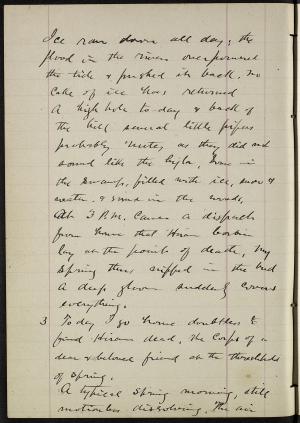 Ice ran down all day; the
flood in the river overpowered
the tide & pushed it back, no
cake of ice has returned
A high hole to-day & back of
the hill several little pipers
probably as they did not
sound like the hyla, down in
the swamps, filled with ice, snow &
water & some in the woods,
At 3 P.M. came a dispatch
from home that Hiram
lay at the point of death, my
spring thus nipped in the bud
A deep gloom suddenly covers
everything.
3 To-day I go home doubtless to
find Hiram dead, the corpse of a
dear & beloved friend on the threshold
of spring.
A typical spring morning, still
motionless dissolving, The air